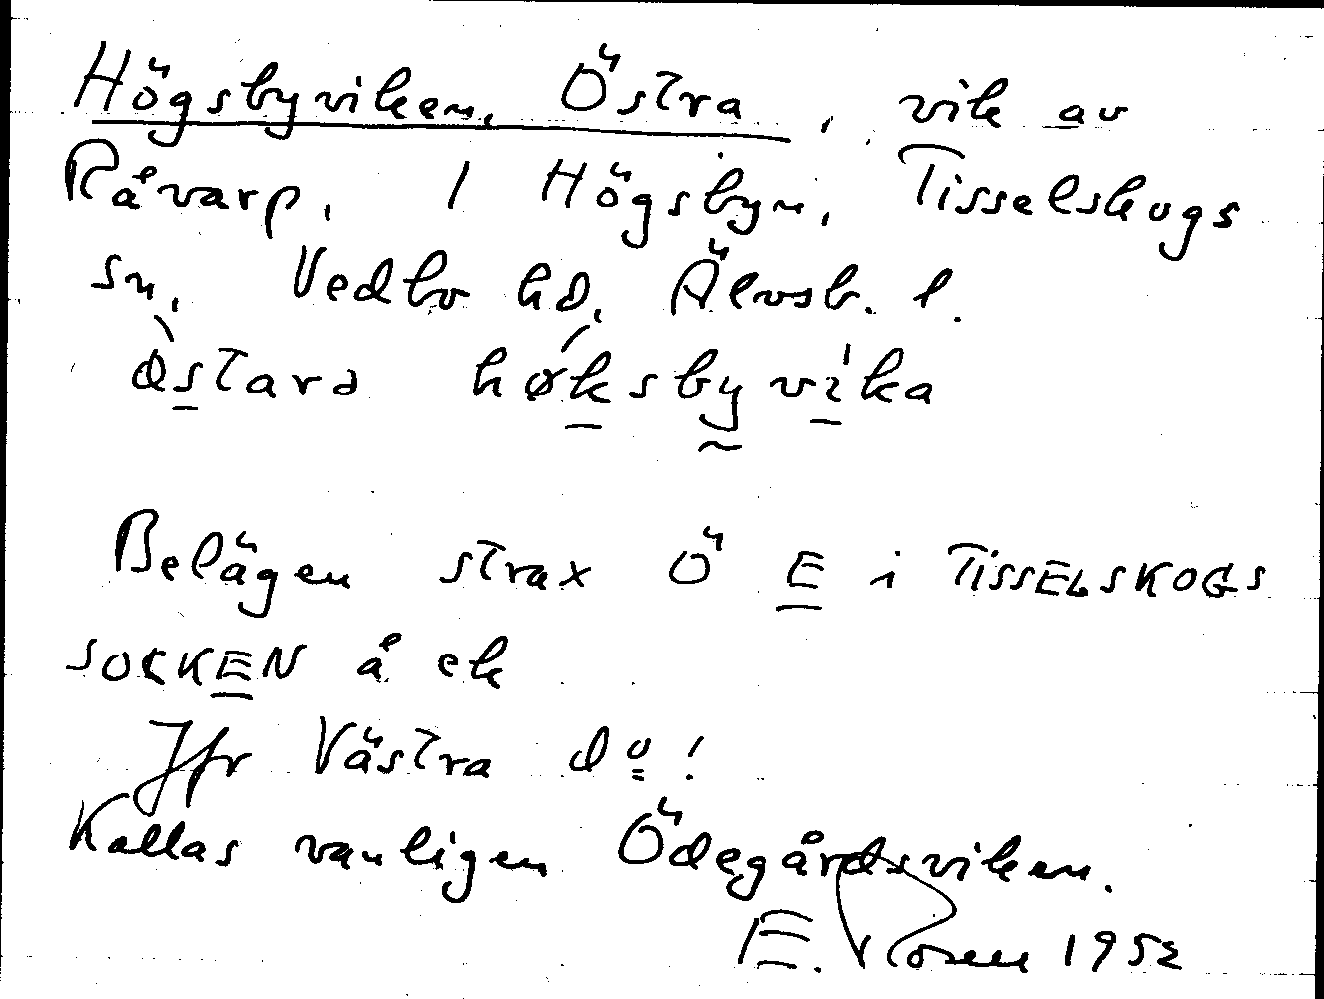 Högsbyviken, Östra, vik av
Råvarp, / Högsbyn, Tisselskogs
sn, Vedbo hd, Älvsb. l.
östarə høksbyvika
Belägen strax Ö E i TISSELSKOGS
SOCKEN å ek
Jfr Västra do!
Kallas vanligen Ödegårdsviken.
E. Rosen 1952